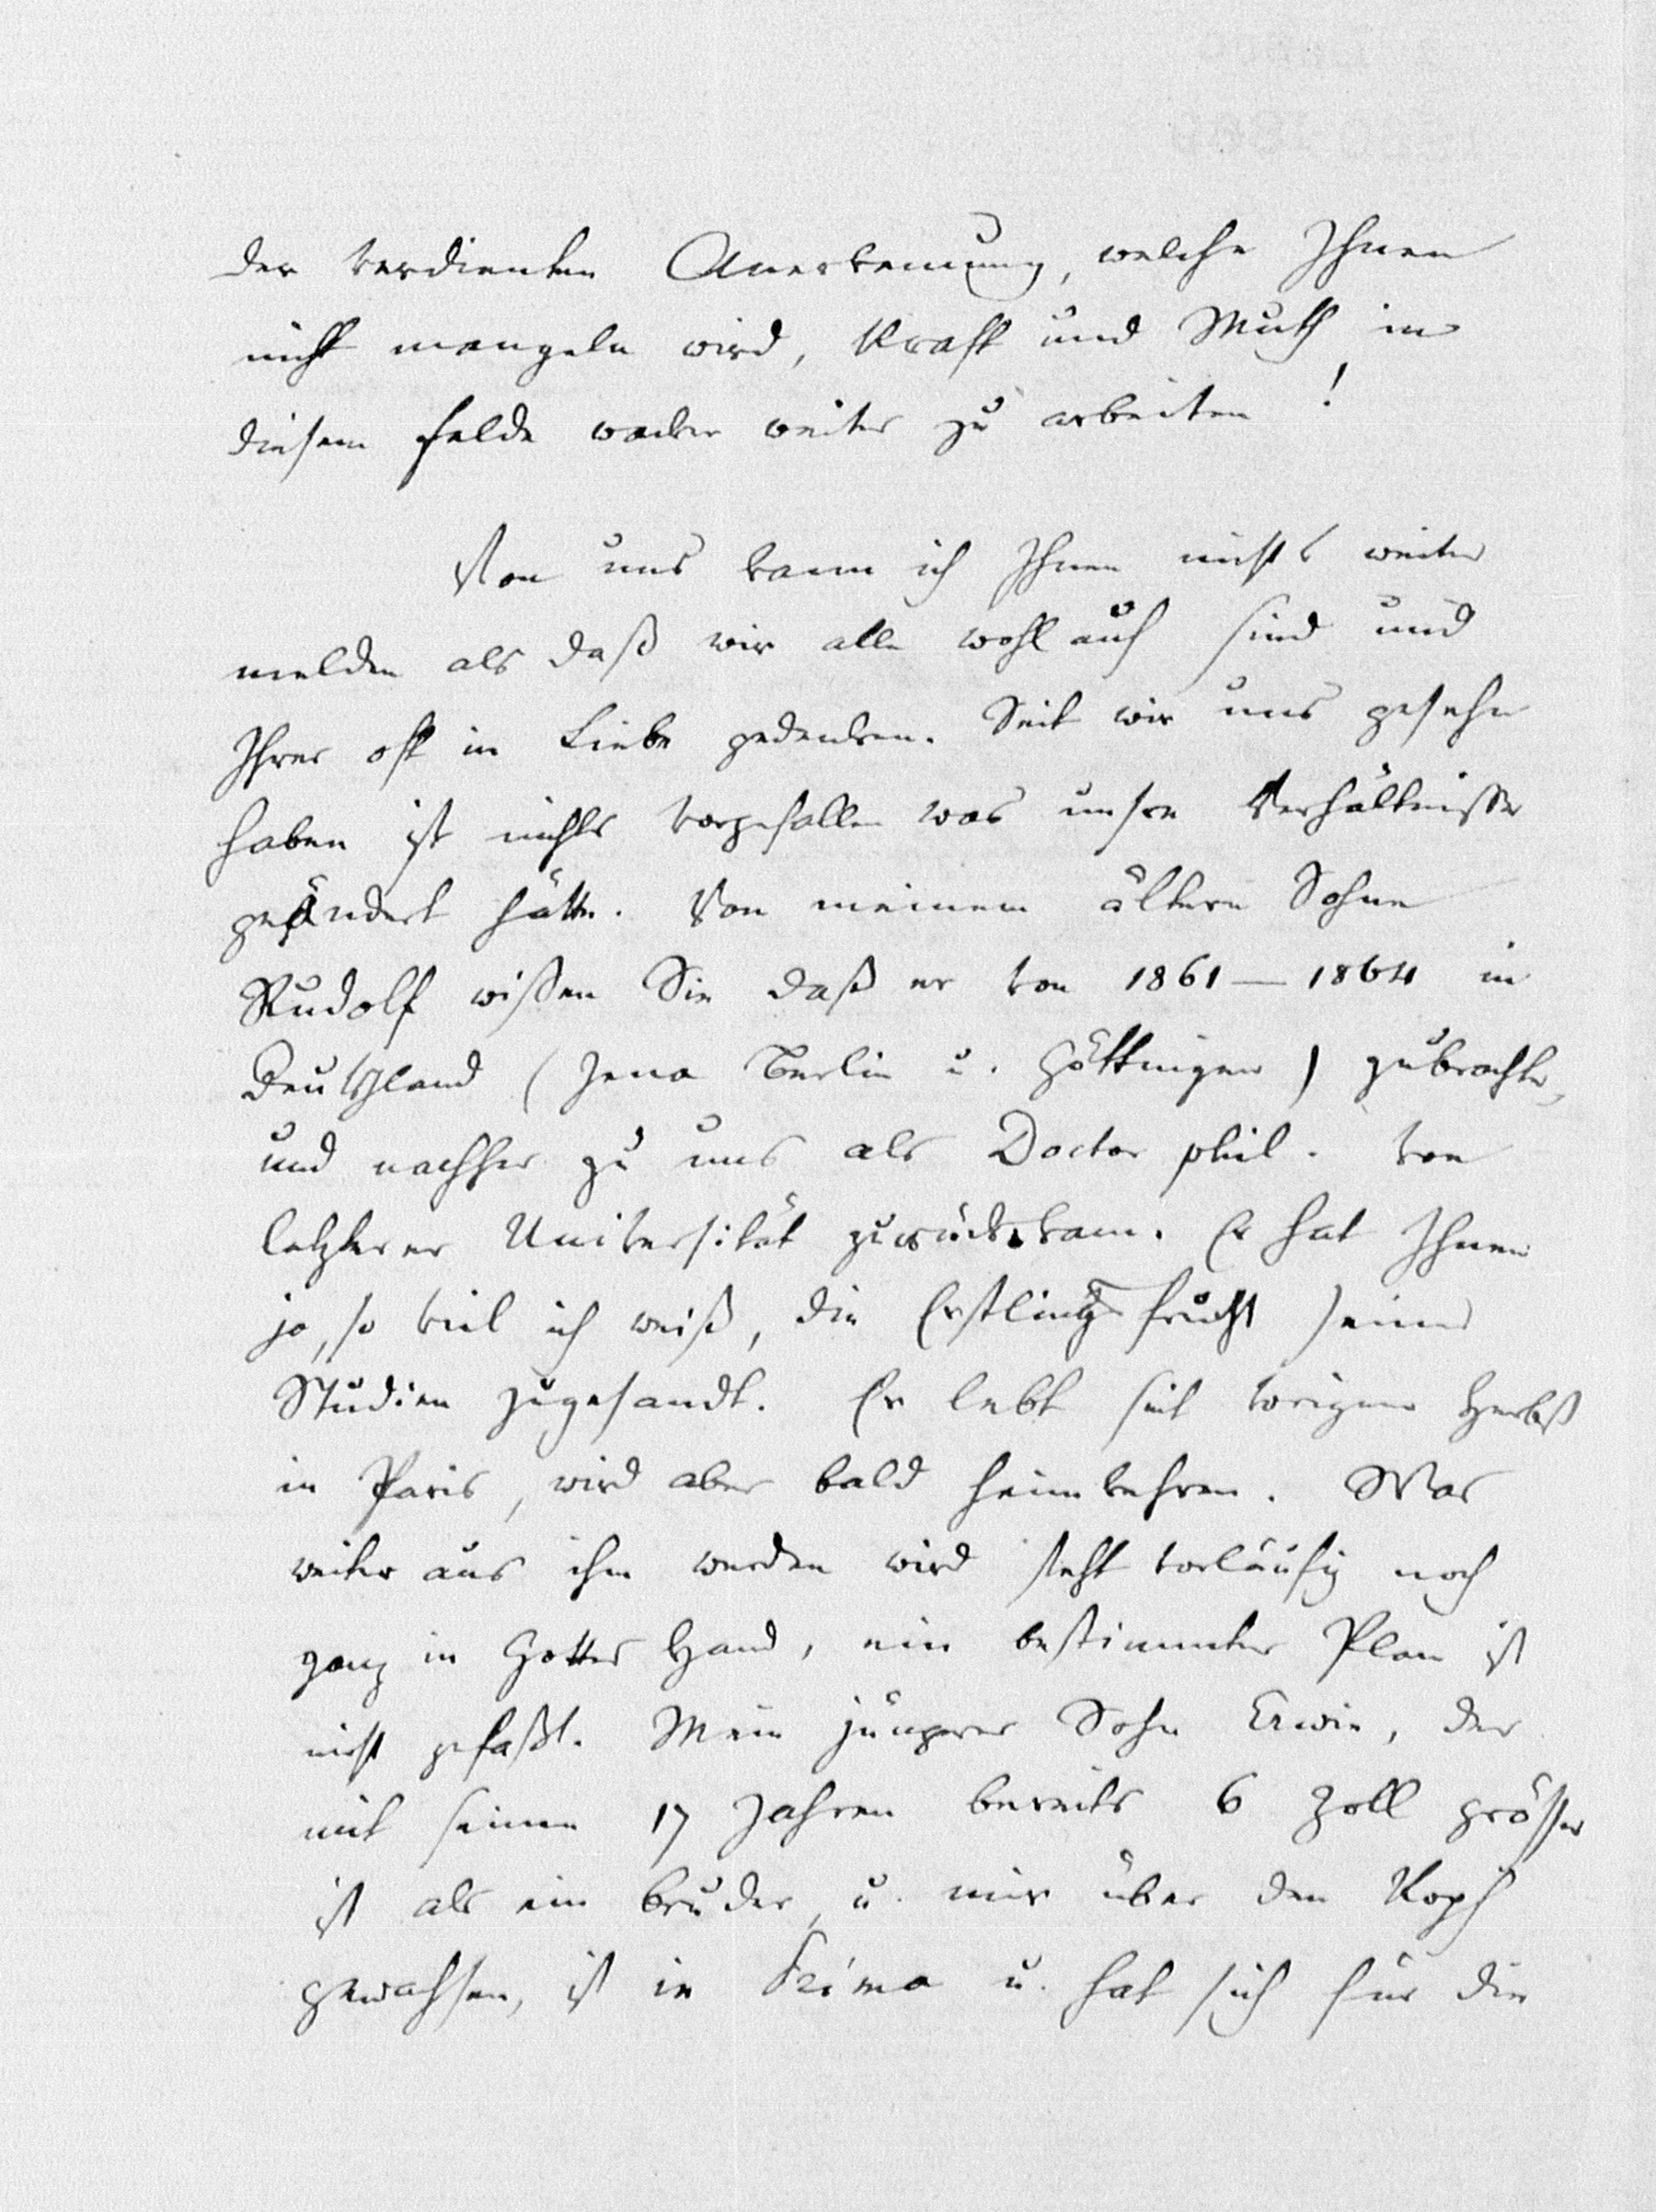 der verdienten Anerkennung, welche Ihnen
nicht mangeln wird, Kraft und Muth in
diesem Felde wacker weiter zu arbeiten!
Von uns kann ich Ihnen nichts weiter
melden als daß wir alle wohlauf sind und
Ihrer oft in Liebe gedenken. Seit wir uns gesehn
haben ist nichts vorgefallen was unsre Verhältnisse
geändert hätte. Von meinem ältern Sohne
Rudolf wißen Sie daß er von 1861 — 1864 in
Deutschland (Jena Berlin u. Göttingen) zubrachte,
und nachher zu uns als Doctor phil. von
letzterer Universität zurückkam. Er hat Ihnen
ja, so viel ich weiß, die Erstlingsfrucht seiner
Studien zugesandt. Er lebt seit vorigem Herbst
in Paris, wird aber bald heimkehren. Was
weiter aus ihm werden wird steht vorläufig noch
ganz in Gottes Hand, ein bestimmter Plan ist
nicht gefaßt. Mein jüngerer Sohn Erwin, der
mit seinen 17 Jahren bereits 6 Zoll grösser
ist als ein Bruder, u. mir über den Kopf
gewachsen, ist in Prima u. hat sich für die